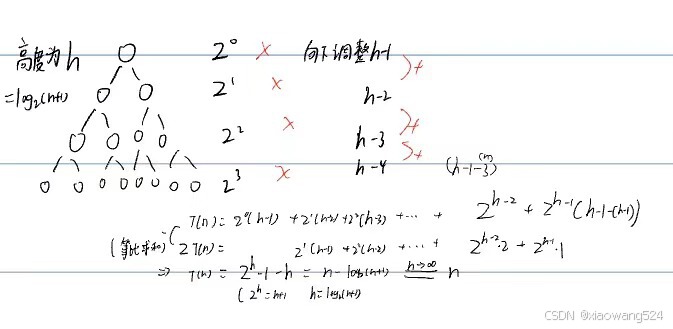 高度为h
=log₂(n+1)
2⁰ × 向下调整h-1
2¹ × h-2
2² × h-3
2³ × h-4 (h-1-3)
T(n)= 2⁰(h-1) +2¹(h-2)+2²(h-3) +⋯+ 2^{h-2} + 2^{h-1}(h-1-(h-1))
(等比求和) 2T(n)= 2¹(h-1) +2²(h-2) +⋯+ 2^{h-2}·2 + 2^{h-1}·1
⇒ T(n) = 2^h -1 -h = n - log₂(n+1) n→∞ n
(2^h = n+1 h=log₂(n+1)
CSDN @xiaowang524